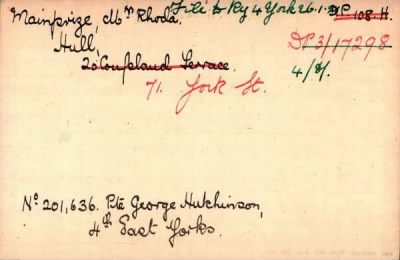 Mainprize, Mrs Rhoda. File to Ry 4 York 26.1. DP 108.H.
Hull,
DP3/17298
20 Coupland Terrace.
4/D/.
71. York St.
No 201,636. Pte George Hutchinson,
4th East Yorks.